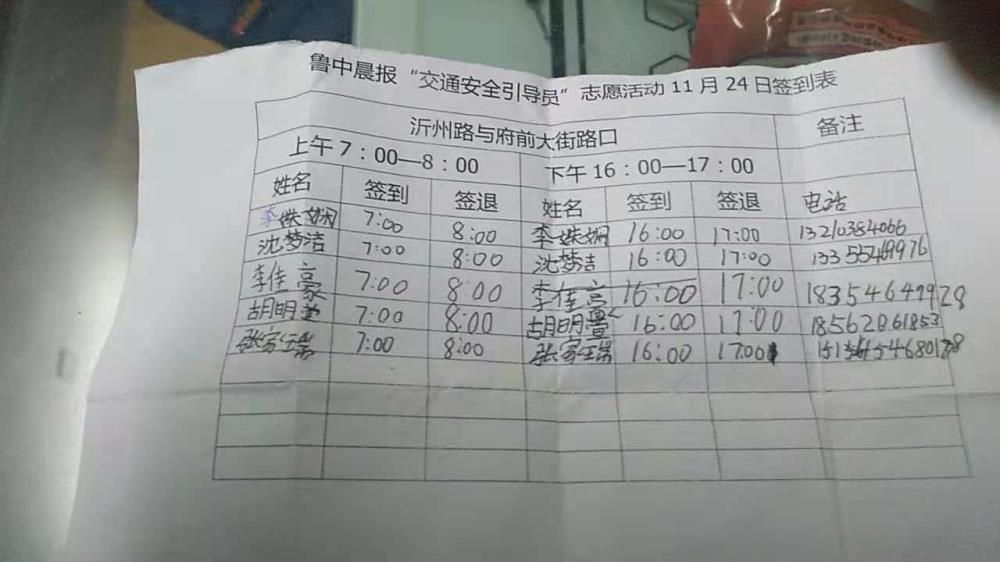 鲁中晨报“交通安全引导员”志愿活动11月24日签到表
沂州路与府前大街路口 备注
上午7：00—8：00 下午16：00—17：00
姓名 签到 签退 姓名 签到 签退 电话
李姝娴 7:00 8:00 李姝娴 16:00 17:00 13210384066
沈梦洁 7:00 8:00 沈梦洁 16:00 17:00 13355469976
李佳豪 7:00 8:00 李佳豪 16:00 17:00 18354649928
胡明萱 7:00 8:00 胡明萱 16:00 17:00 18562061853
张家瑞 7:00 8:00 张家瑞 16:00 17:00